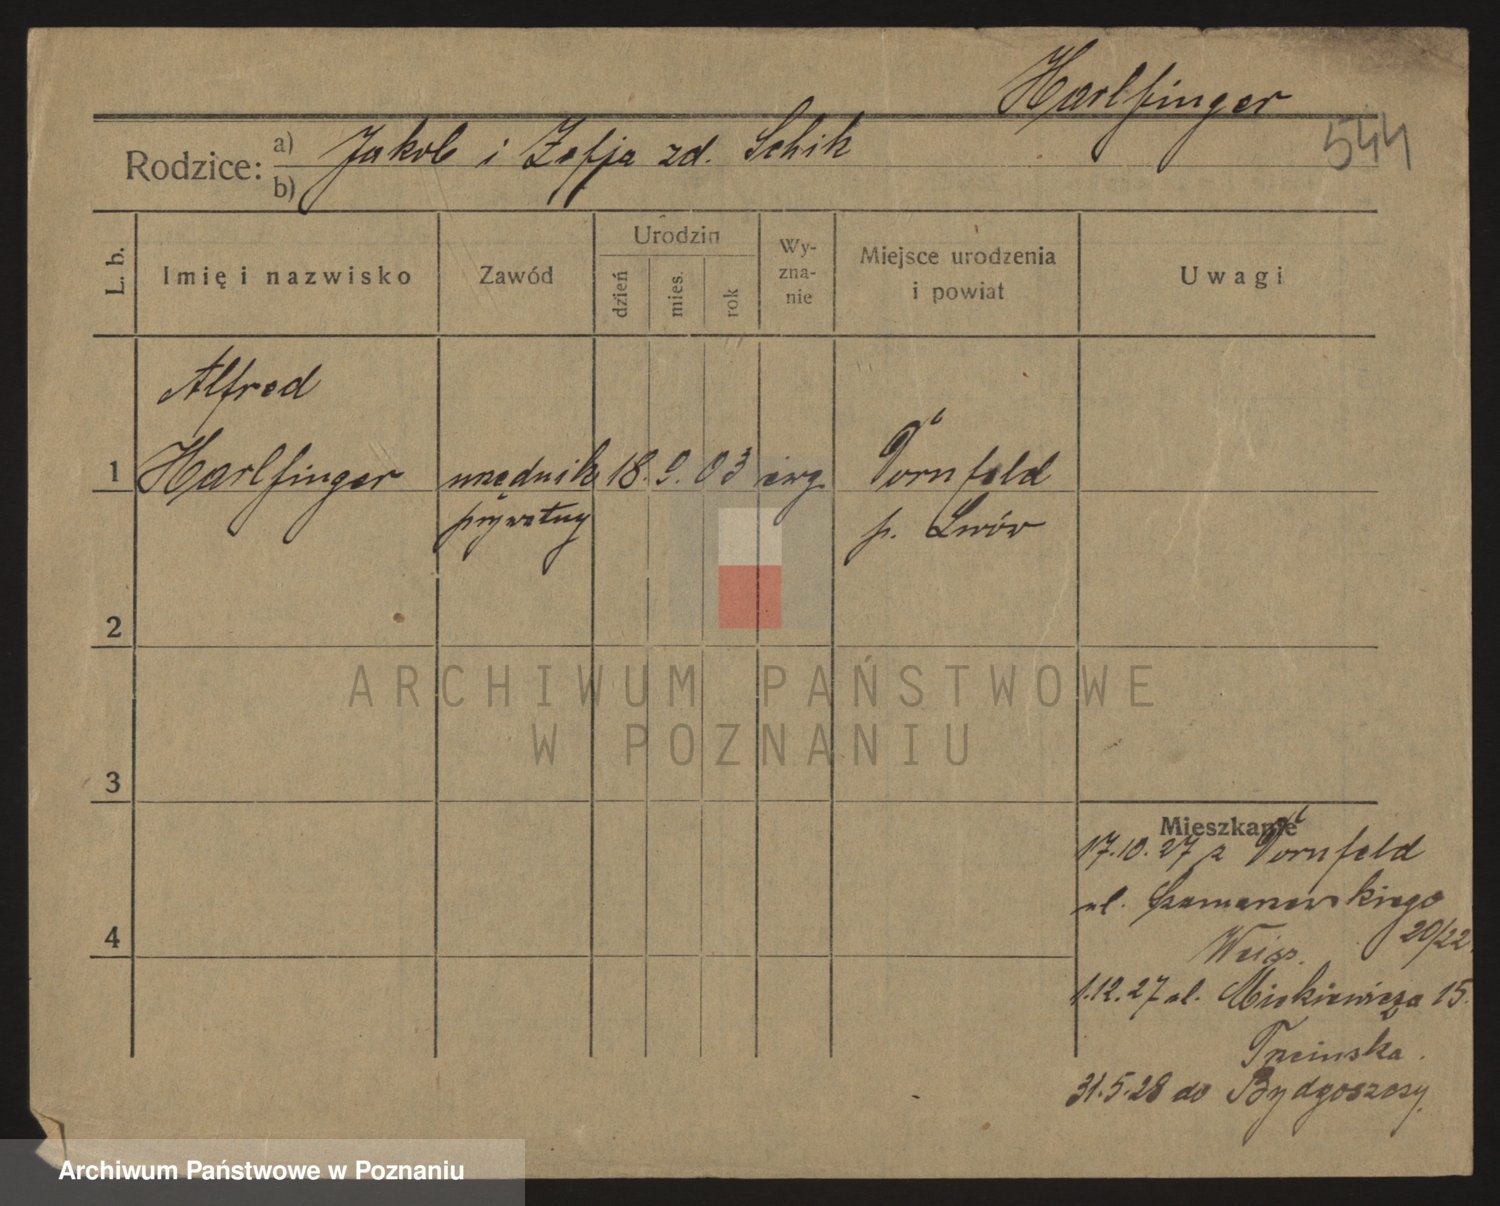 Harlfinger
544
Rodzice: a) Jakob i Zofja zd. Schik
b)
L. b. Imię i nazwisko Zawód Urodzin dzień mies. rok Wyznanie Miejsce urodzenia i powiat Uwagi
Alfred
1 Harlfinger urzędnik 18. 9. 03 ewg. Dornfeld
prywatny p. Lwów
2
3
Mieszkanie
17.10.27 z Dornfeld
ul. Szamarzewskiego
4
20/22.
Weiss.
1.12.27 ul. Mickiewicza 15.
31.5.28 do Bydgoszczy.
ARCHIWUM PAŃSTWOWE
W POZNANIU
Archiwum Państwowe w Poznaniu